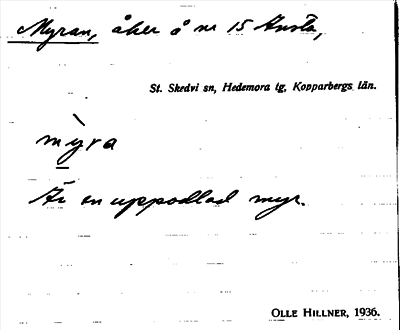 Myran, åker å nr 15 Knsta,
St. Skedvi sn, Hedemora tg, Kopparbergs län.
mỳra
Är en uppodlad myr.
OLLE HILLNER, 1936.